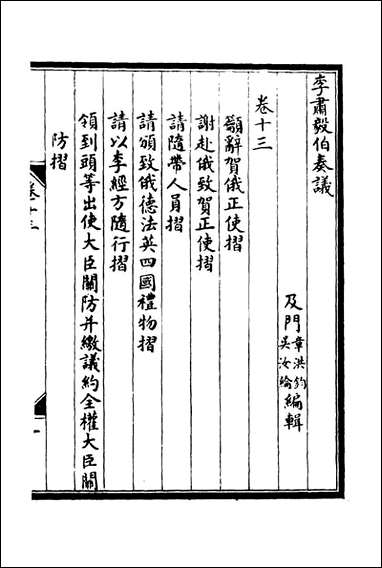 李肅毅伯奏議
及門章洪鈞吳汝綸編輯
卷十三
籲辭賀俄正使摺
謝赴俄致賀正使摺
請隨帶人員摺
請頒致俄德法英四國禮物摺
請以李經方隨行摺
領到頭等出使大臣關防并繳議約全權大臣關
防摺
卷十三
一